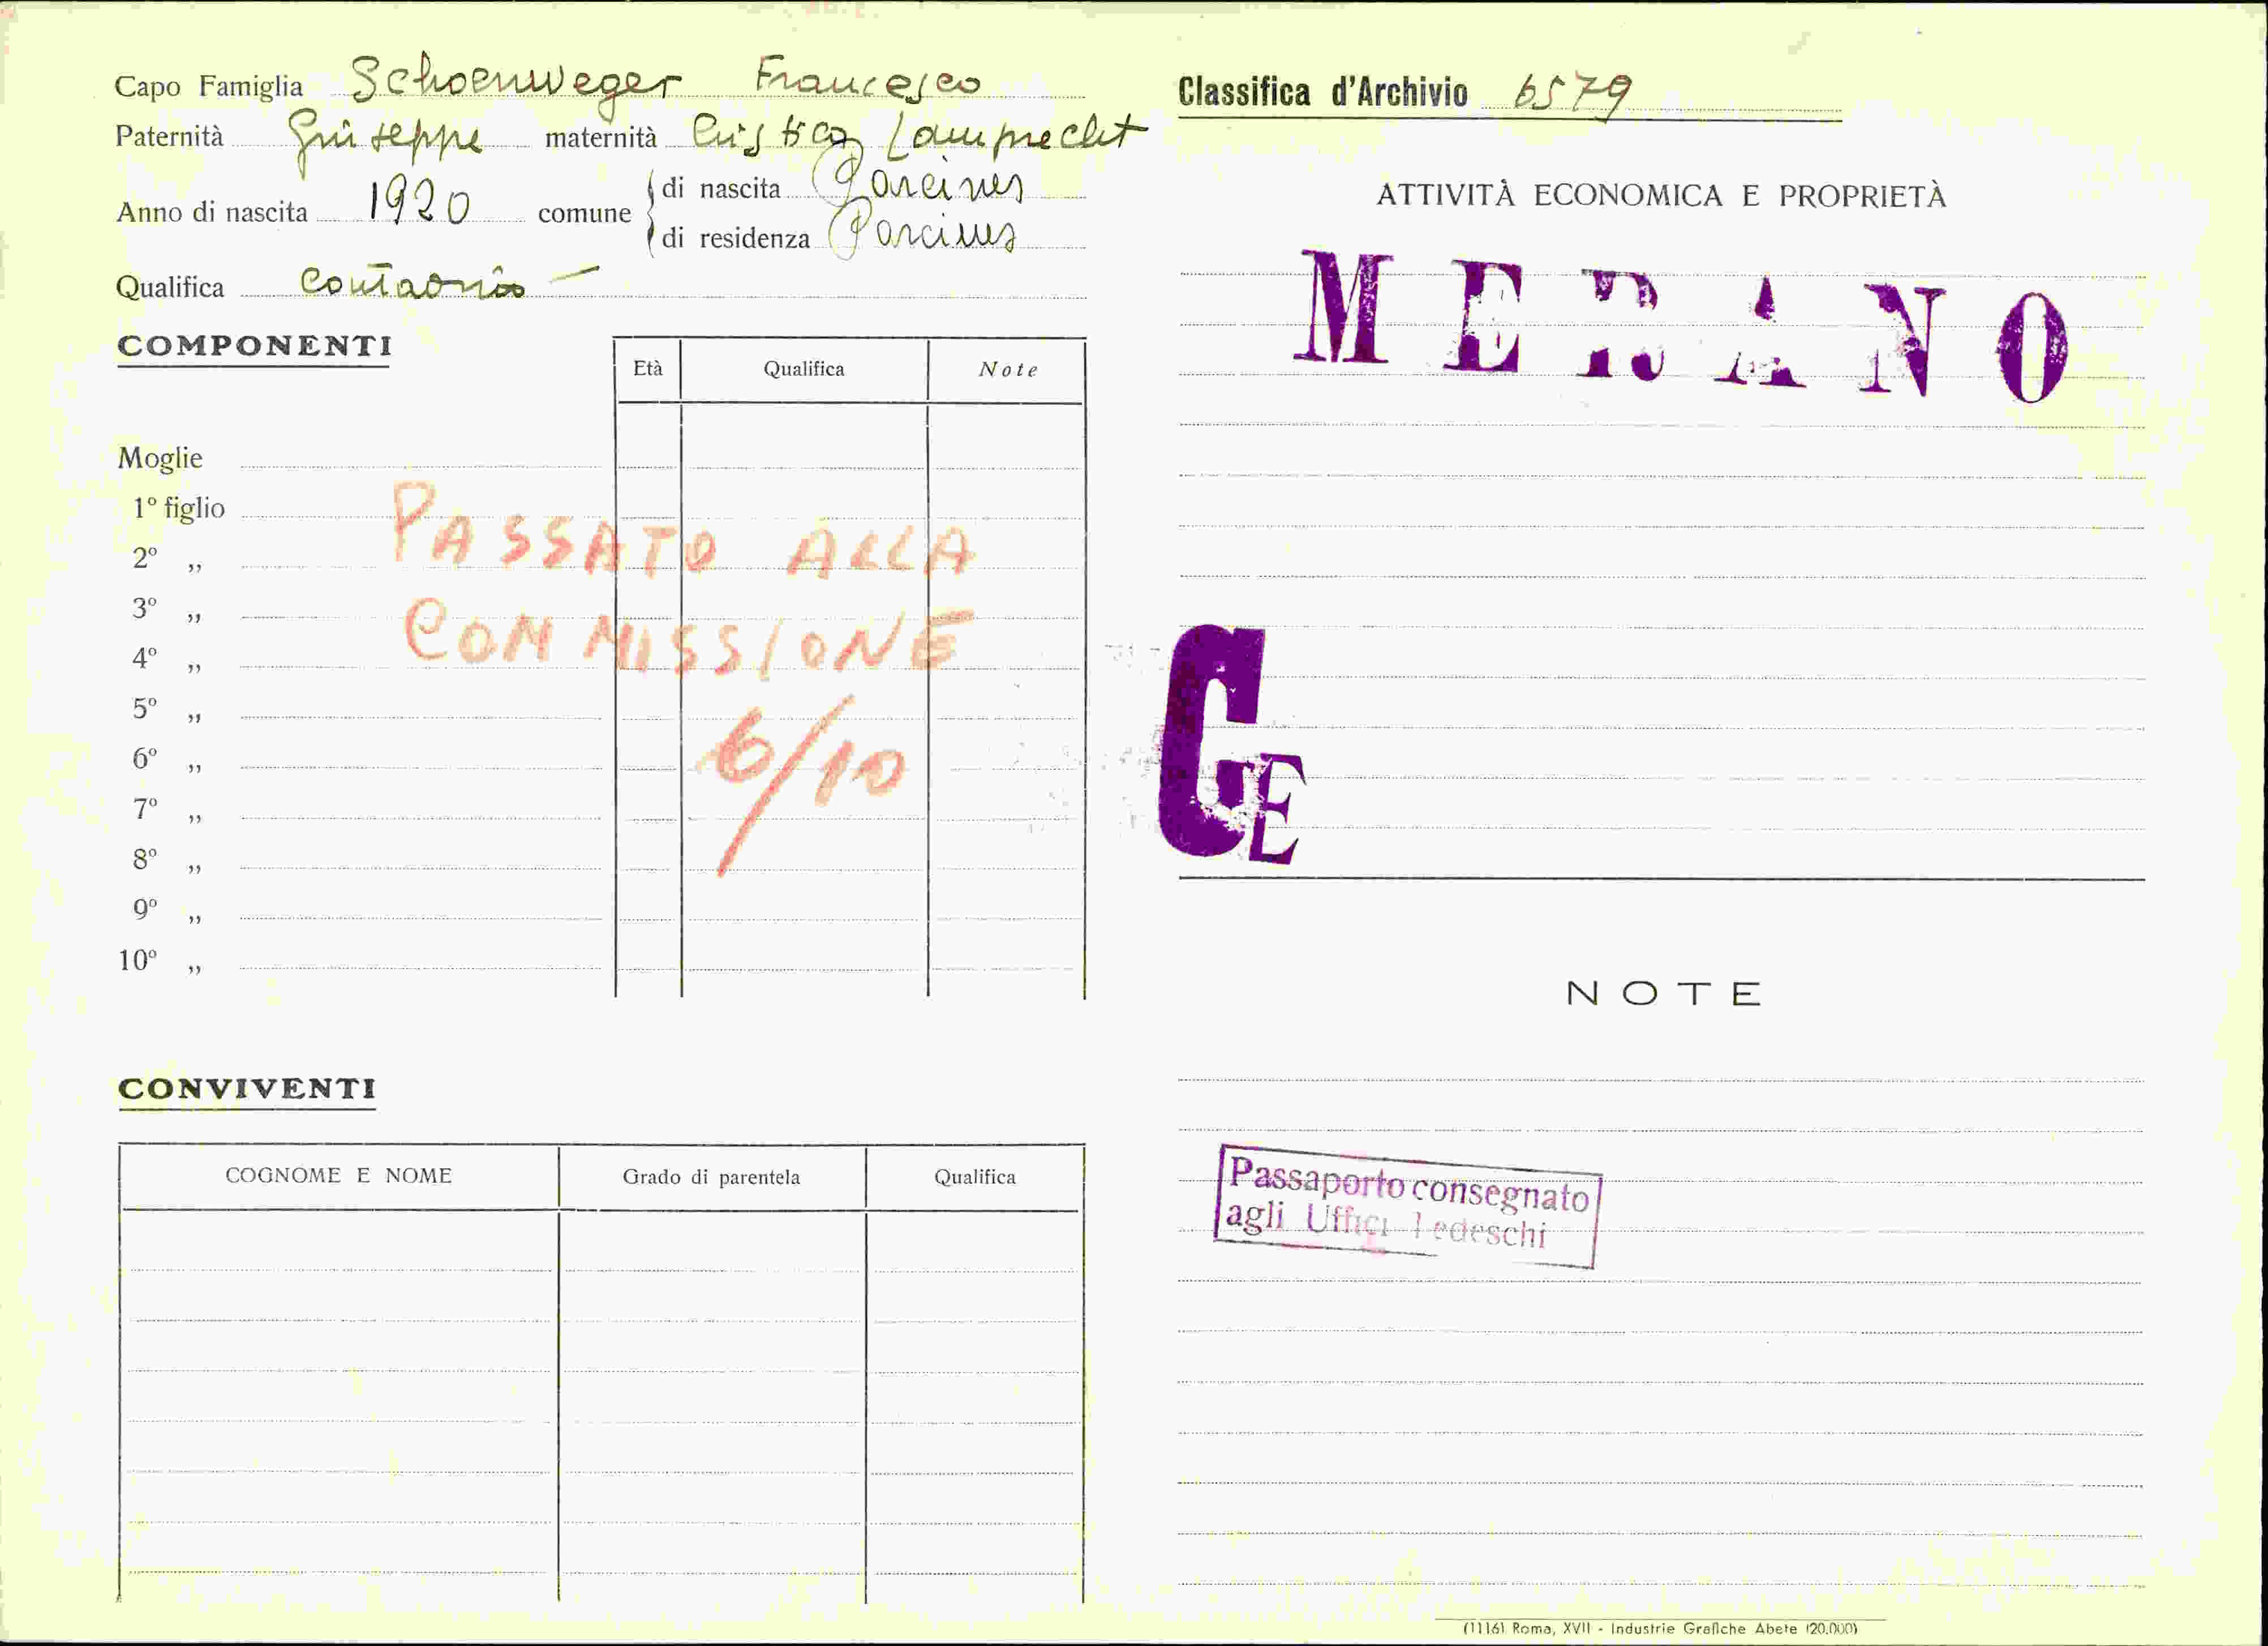 Capo Famiglia Schoenweger Francesco
Paternità Giuseppe maternità Lamprecht
Anno di nascita 1920 comune di nascita Parcines
di residenza Parcines
Qualifica Contadino
COMPONENTI
Età Qualifica Note
Moglie
1º figlio
2º „
3º „
4º „
5º „
6º „
7º „
8º „
9º „
10º „
PASSATO ALLA
COMMISSIONE
6/10
CONVIVENTI
COGNOME E NOME Grado di parentela Qualifica
Classifica d'Archivio 6579
ATTIVITÀ ECONOMICA E PROPRIETÀ
MERANO
G
E
NOTE
Passaporto consegnato
agli Uffici Tedeschi
(1116) Roma, XVII - Industrie Grafiche Abete (20.000)